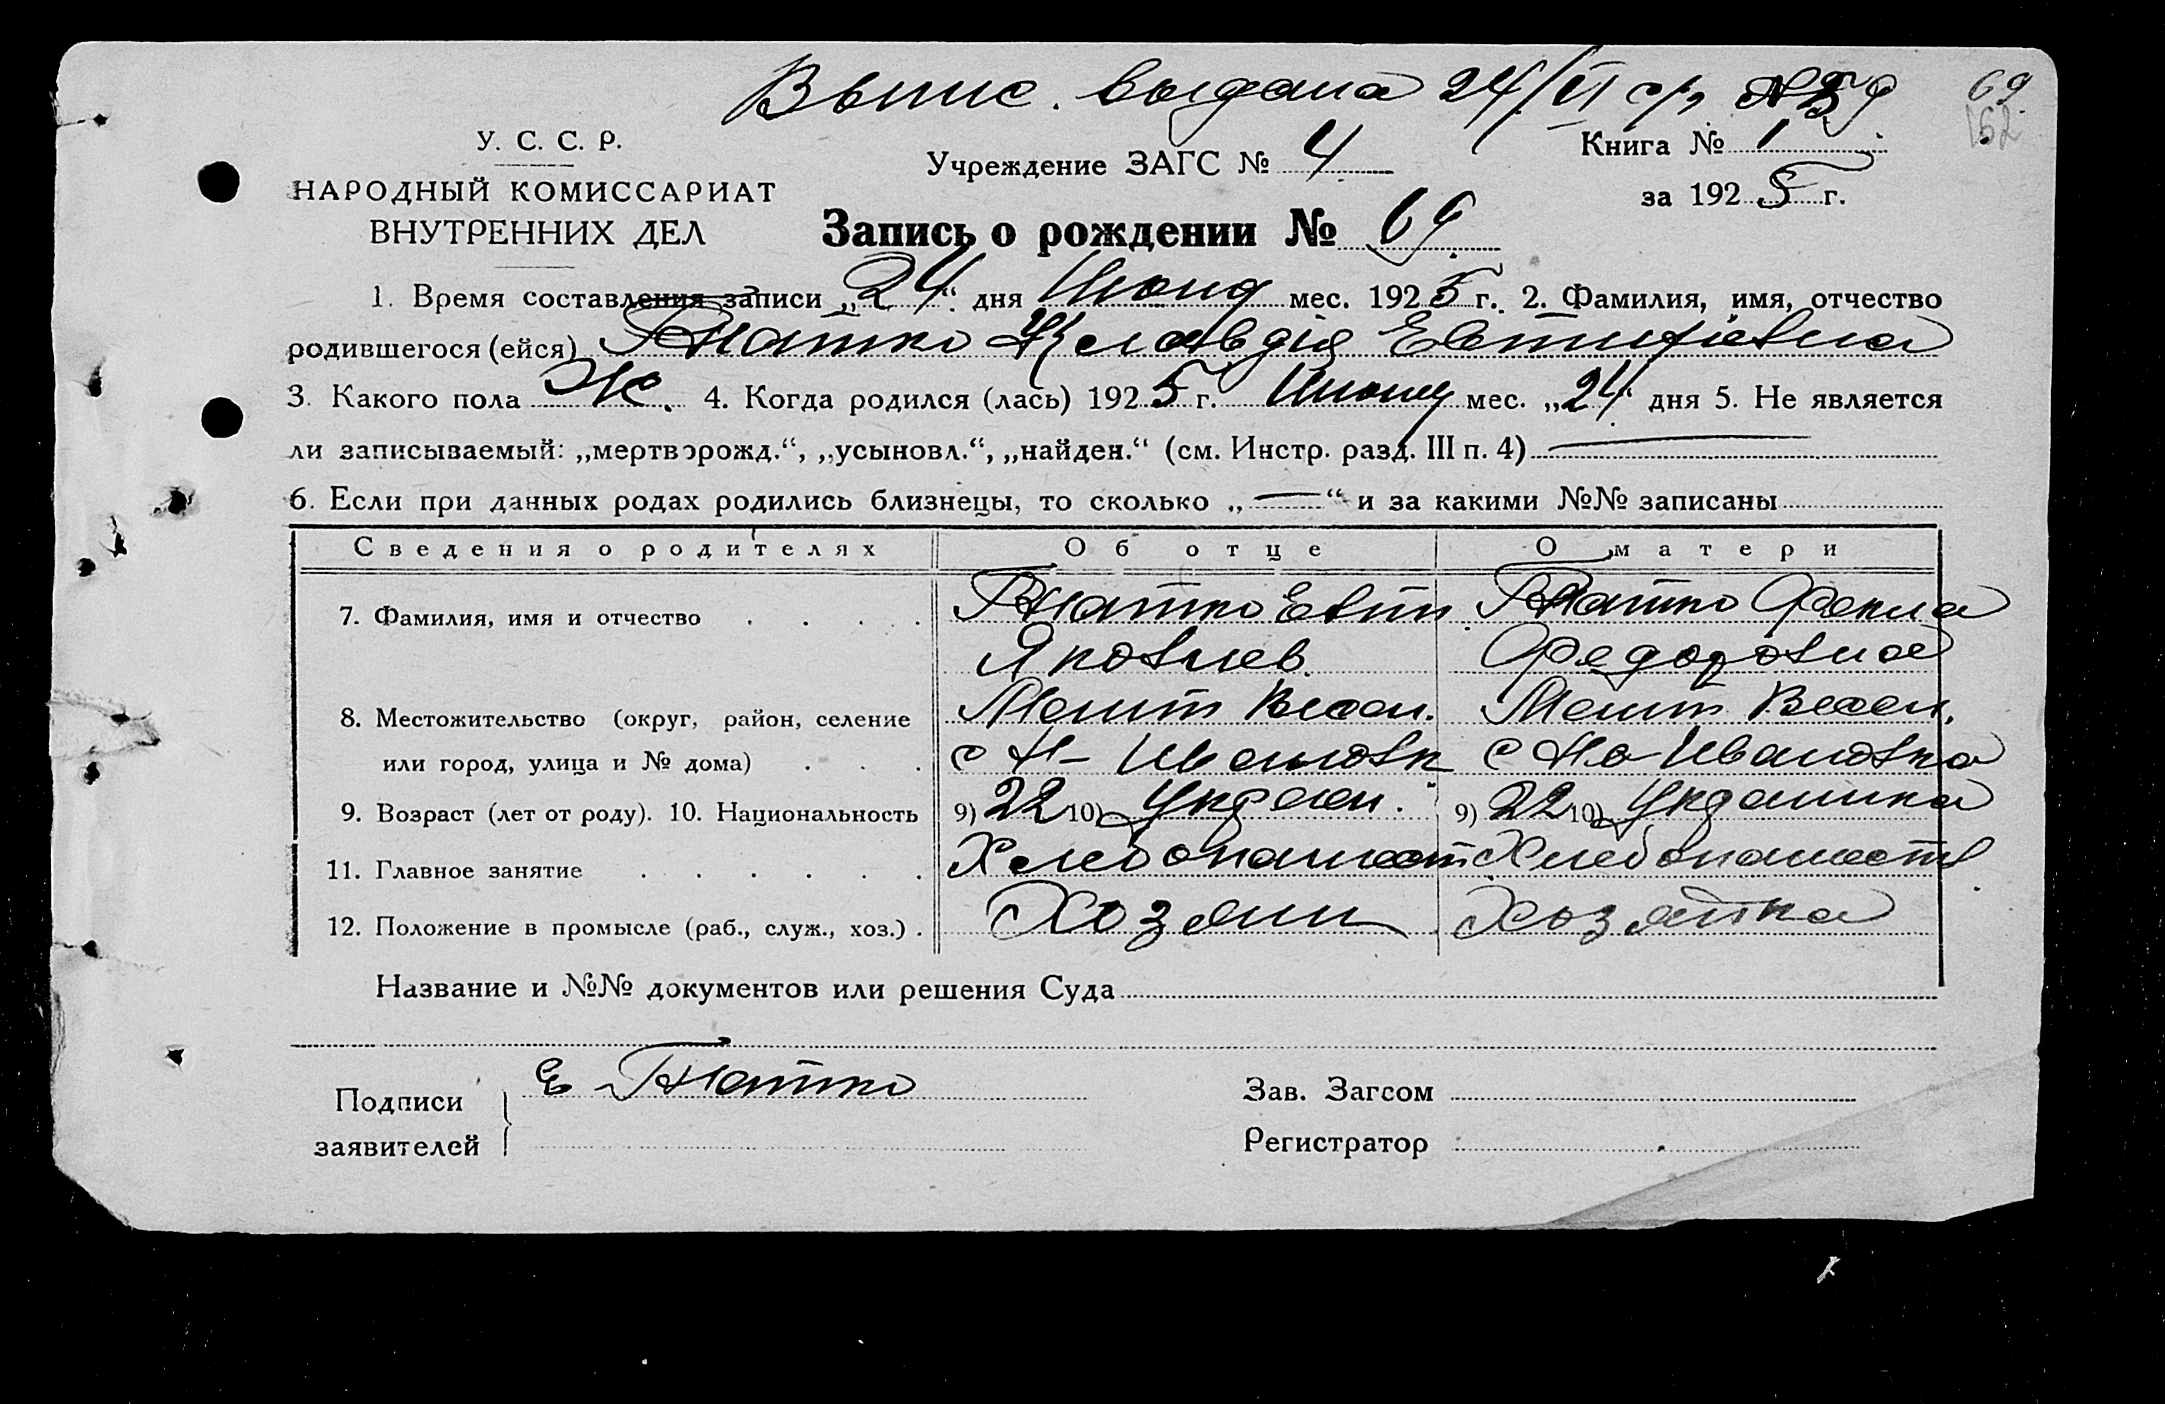 Выпис. выдана 24/VI с/г № 59
69
162
У. С. С. Р.
НАРОДНЫЙ КОМИССАРИАТ
ВНУТРЕННИХ ДЕЛ
Учреждение ЗАГС № 4
Книга № 1
за 1925 г.
Запись о рождении № 69
1. Время составления записи „24“ дня Июня мес. 1925 г. 2. Фамилия, имя, отчество
родившегося (ейся) Гнатко Клавдія Евтифіевна
3. Какого пола Ж. 4. Когда родился (лась) 1925 г. Июня мес. „24“ дня 5. Не является
ли записываемый: „мертворожд.“, „усыновл.“, „найден.“ (см. Инстр. разд. III п. 4) —
6. Если при данных родах родились близнецы, то сколько „—“ и за какими №№ записаны
Сведения о родителях Об отце О матери
7. Фамилия, имя и отчество Гнатко Евти Гнатко Фекла
Яковлев Федоровна
8. Местожительство (округ, район, селение Мелит Весел. Мелит Весел.
или город, улица и № дома) с Н-Ивановк с Но-Ивановка
9. Возраст (лет от роду). 10. Национальность 9) 22 10) Украин. 9) 22 10) Украинка
11. Главное занятие Хлебопашест Хлебопашеств
12. Положение в промысле (раб., служ., хоз.) Хозяин Хозяйка
Название и №№ документов или решения Суда
Подписи Е Гнатко Зав. Загсом
заявителей Регистратор